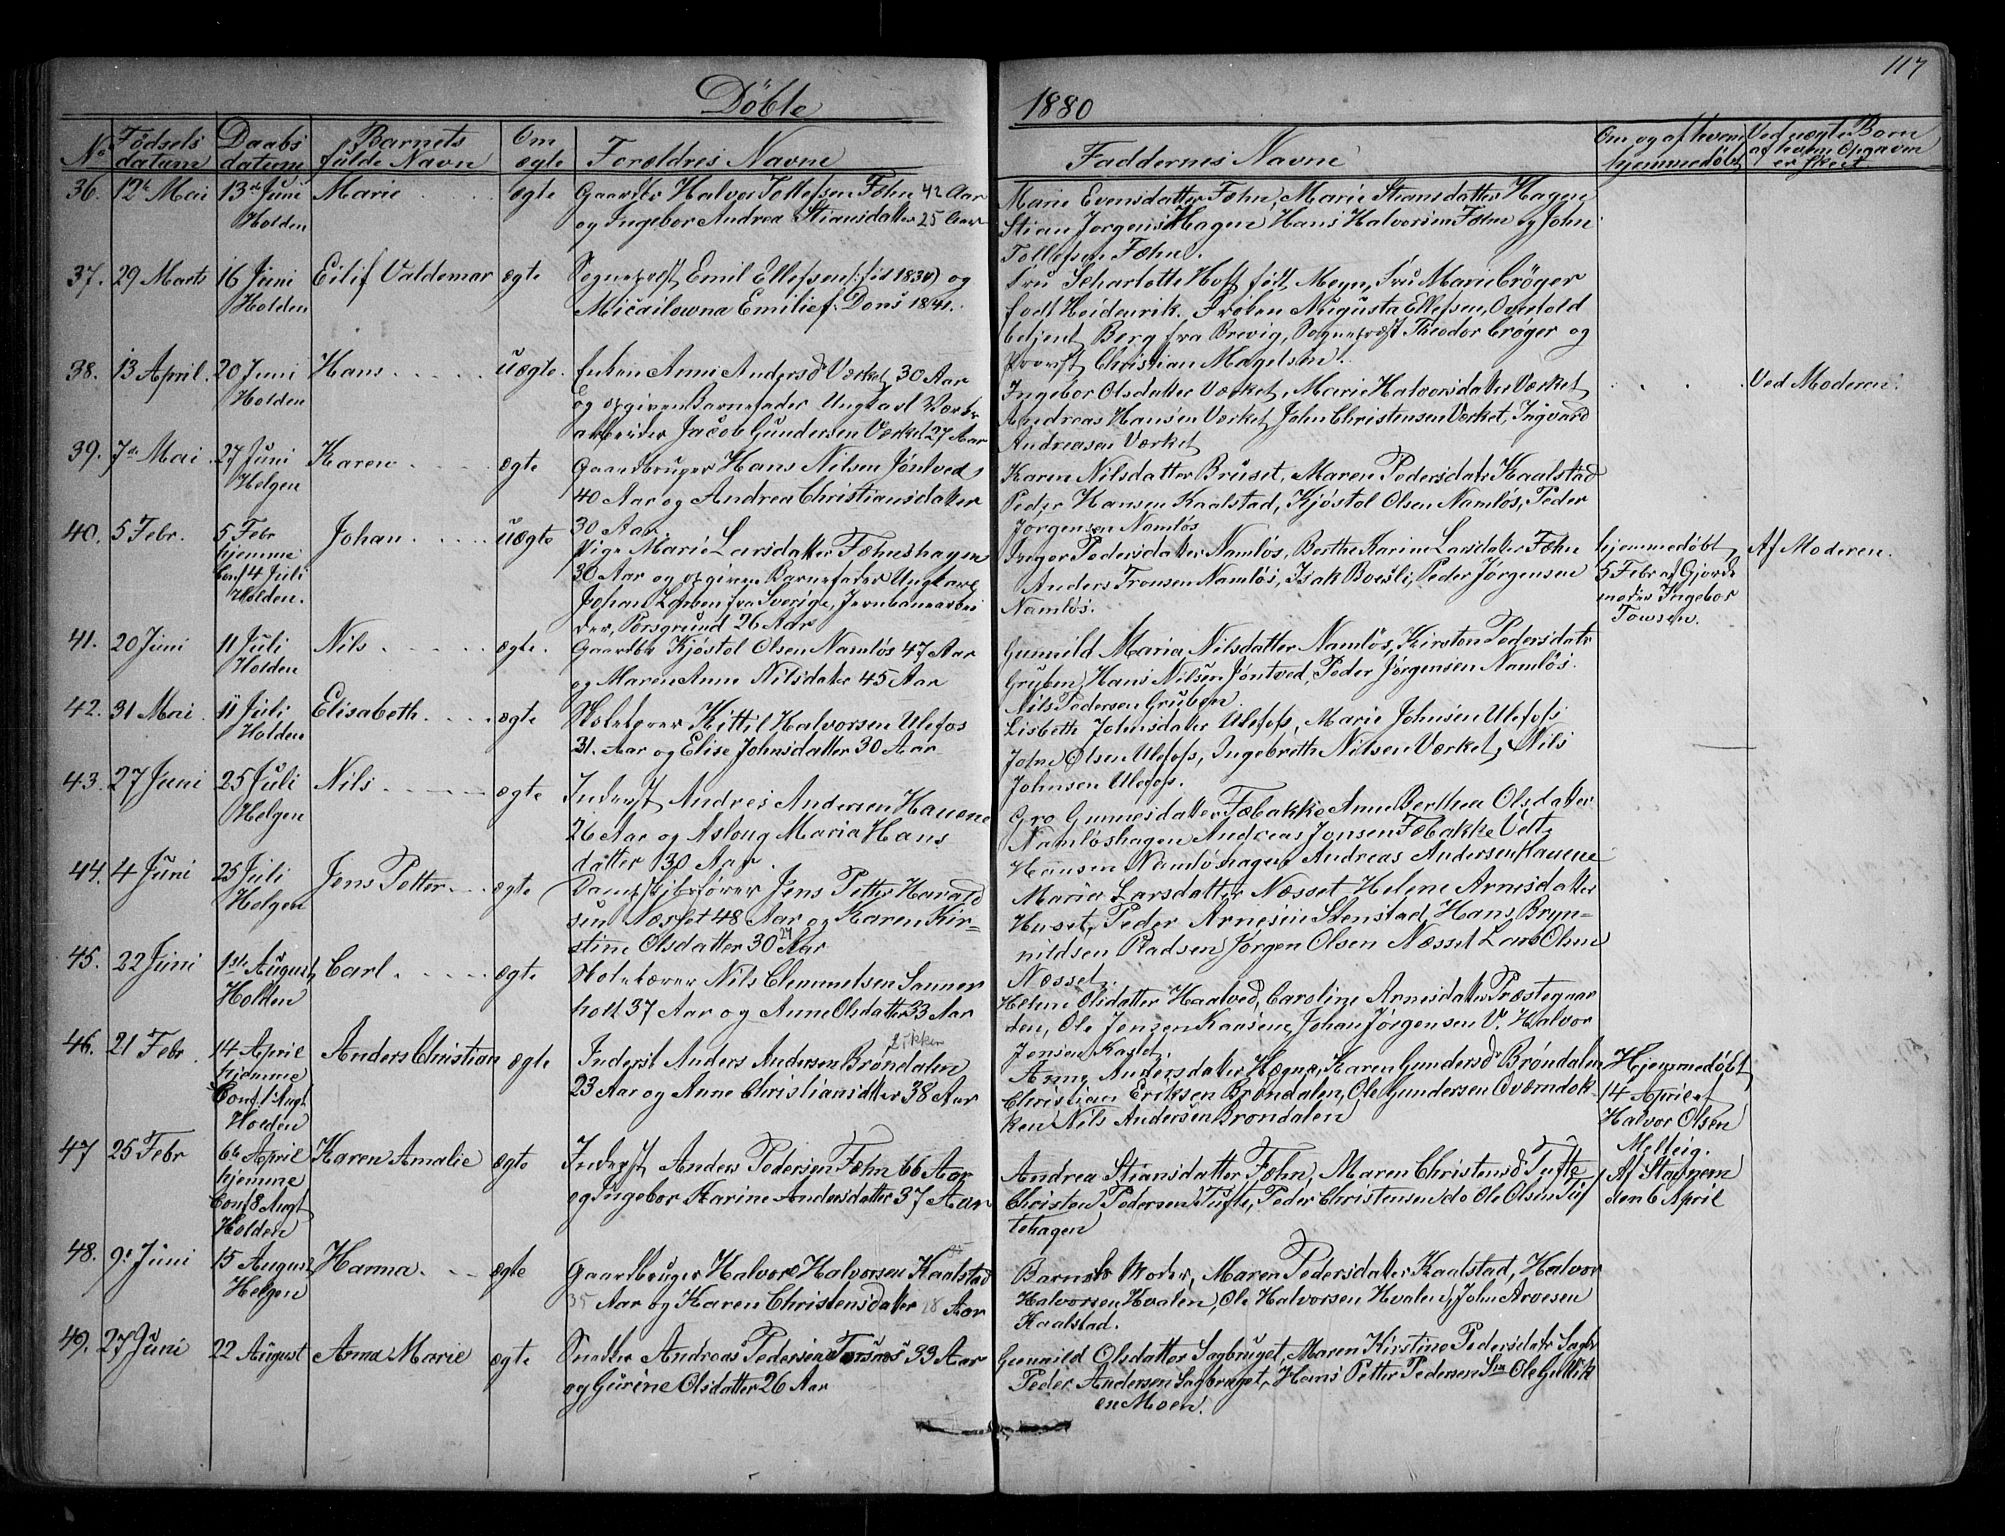 117
Døbte
1880
No
Fødsels datum
Daabs datum
Barnets fulde Navn
Om ægte
Forældres Navne
Faddernes Navne
Om og af hvem hjemmedøbt
Ved uægte Børn af hvem Opgaven er skeet
36. 12te Mai 13de Juni Marie ægte Gaardbr Halvor Tollefsen Fæhn 42 Aar
Holden og Ingebor Andrea Stiansdatter 25 Aar
Marie Evensdatter Fæhn, Marie Stiansdatter Hagen
Stian Jørgens Hagen Hans Halvorsen Fæhn og John
Tollefsen Fæhn.
37. 29 Marts 16 Juni Eilif Valdemar ægte Sognepræst Emil Ellefsen (: fød 1834) og
Holden Micailowna Emilie f. Dons 1841.
Fru Scharlotte Hoff født Meyn, Fru Marie Crøger
født Heidenrik. Frøken Augusta Ellefsen, Overtold
betjent Berg fra Brevig, Sognepræst Theodor Crøger og
Provst Christian Magelsen.
38. 13 April. 20 Juni Hans uægte. Enken Anne Andersd Værket 30 Aar
Holden og opgiven Barnefader Ungkarl Værks
arbeider Jacob Gundersen Værket 27 Aar
Ingebor Olsdatter Værket, Marie Halvorsdatter Værket
Andreas Hansen Værket John Christensen Værket, Ingvard
Andreasen Værket
Ved Moderen.
39. 7de Mai 27 Juni Karen ægte Gaardbruger Hans Nilsen Jöntved
Helgen 40 Aar og Andrea Christiansdatter
30 Aar
Karen Nilsdatter Bruset, Maren Pedersdatr Kaalstad
Peder Hansen Kaalstad, Kjøstol Olsen Namløs, Peder
Jørgensen Namløs
40. 5 Febr. 5 Febr Johan uægte Pige Marie Larsdatter Fæhnshagen
hjemme 30 Aar og opgiven Barnefader Ungkarl
Conf 4 Juli Johan fra Sverige, Jernbanearbei
Holden. der, Porsgrund 26 Aar
Inger Pedersdatter Namløs, Berthe Karine Larsdatter Fæhn
Anders Tronsen Namløs, Isak Boesli, Peder Jørgensen
Namløs.
hjemmedøbt
5 Febr af Gjorde
moder Ingebor
Towsen.
Af Moderen.
41. 20 Juni 11 Juli Nils ægte. Gaardbr Kjøstol Olsen Namløs 47 Aar
Holden og Maren Anne Nilsdatter 45 Aar
Gunnild Maria Nilsdatter Namløs, Kirsten Pedersdatr
Gruben, Hans Nilsen Jöntved, Peder Jørgensen Namløs.
Nils Pedersen Gruben.
42. 31 Mai 11 Juli Elisabeth ægte Skolelærer Kittil Halvorsen Ulefos
Holden 31. Aar og Elise Johnsdatter 30 Aar
Lisbeth Johnsdatter Ulefoss, Marie Johnsen Ulefoss
John Olsen Ulefoss, Ingebreth Nilsen Værket, Nils
Johnsen Ulefoss.
43. 27 Juni 25 Juli Nils ægte Inderst Andres Andersen Hauene
Helgen 26 Aar og Aslaug Maria Hans
datter 30 Aar.
Gro Gunnesdatter Fæbakke Anne Berthea Olsdatter
Namløshagen Andreas Jonsen Fæbakke Vetle
Hansen Namløshagen Andreas Andersen Hauene
44. 4 Juni 25 Juli Jens Petter ægte Dampskibsfører Jens Petter Harald
Helgen sen Næsset 48 Aar og Karen Kir=
stine Olsdatter 30 Aar
Maria Larsdatter Næsset Helene Arnesdatter
Huset, Peder Arnesen Stenstad, Hans Bryn=
nildsen Pladsen Jørgen Olsen Næsset Lars Olsen
Næsset.
45. 22 Juni 1ste August Carl ægte Skolelærer Nils Clemmetsen Sanner
Holden holt 37 Aar og Anne Olsdatter 33 Aar
Helene Olsdatter Haatved, Caroline Arnesdatter Præstegaar
den, Ole Jensen Kaasene Johan Jørgensen V. Halvor
Jensen Kaslet.
46. 21 Febr. 14 April Anders Christian ægte Inderst Anders Andersen Brøndalen
hjemme 23 Aar og Anne Christiansdtter 38 Aar
Conf. 1 Augt
Holden
Anne Andersdatter Hægna, Karen Gundersdr Brøndalen
Christian Eriksen Brøndalen, Ole Gundersen Qværndok
ken Nils Andersen Brøndalen
Hjemmedøbt
14 April af
Halvor Olsen
Melteig.
47 25 Febr 6te April Karen Amalie ægte Inderst Anders Pedersen Fæhn 66 Aar
hjemme og Ingebor Karine Andersdatter 37 Aar
Conf 8 Augt
Holden
Andrea Stiansdatter Fæhn, Maren Christensd Tufte
Christen Pedersen Tufte, Peder Christensen do Ole Olsen Tuf
tehagen
Af
den 6 April
48. 9. Juni 15 August Hanna ægte Gaardbruger Halvor Halvorsen Kaalstad
Helgen 35 Aar og Karen Christensdatter 28 Aar
Barnets Moder, Maren Pedersdatter Kaalstad, Halvor
Halvorsen Hvalen, Ole Halvorsen Hvalen, John Arvesen
Kaalstad.
49. 27 Juni 22 August Anna Marie ægte Snedker Andreas Pedersen Torsnes 33 Aar
og Gurine Olsdatter 26 Aar
Gunnild Olsdatter Sagbruget, Maren Kirstine Pedersdatr Sagbr
Peder Andersen Sagbruget, Hans Petter Pedersen Sm Ole Gullik
en Moen.